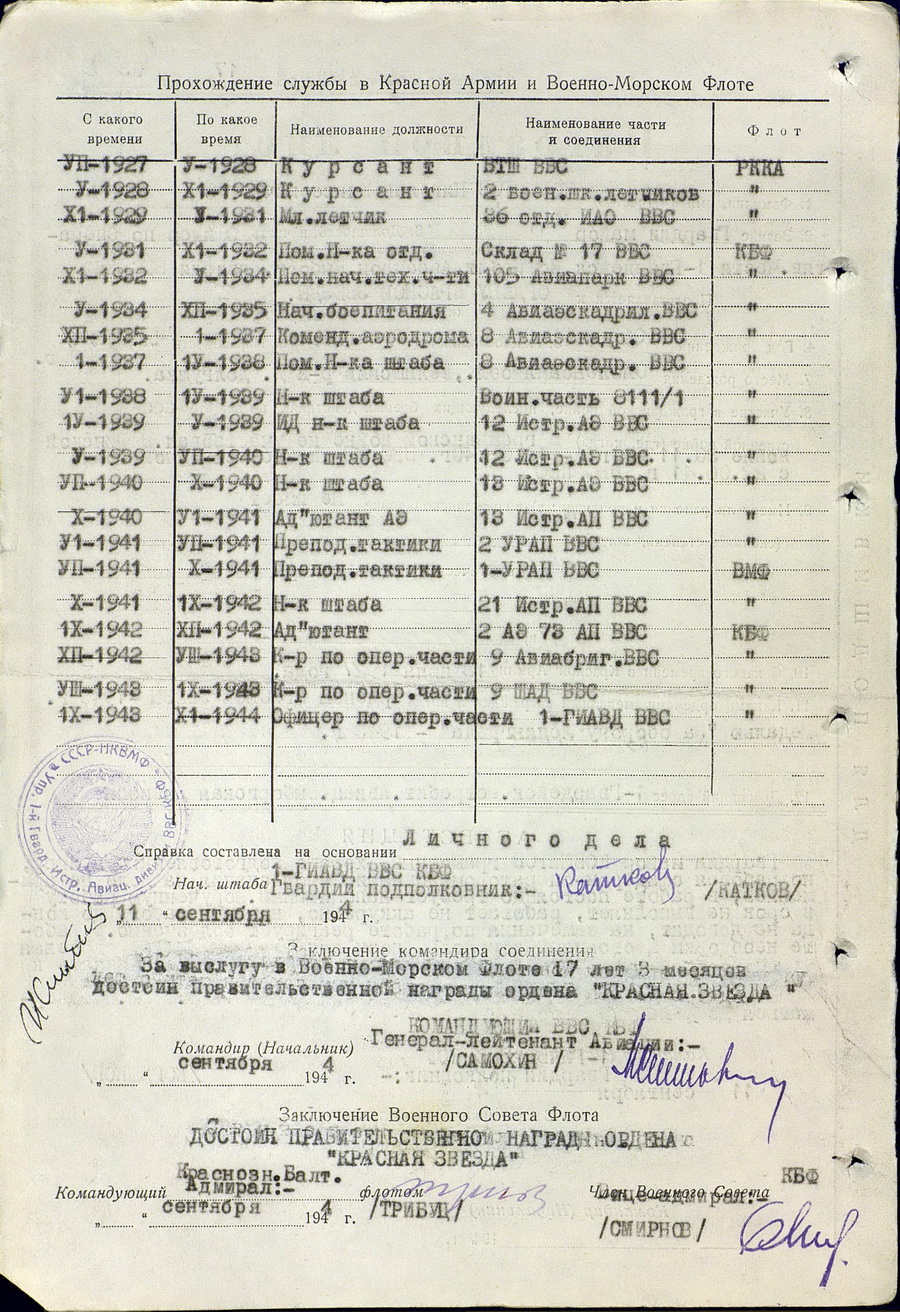 Прохождение службы в Красной Армии и Военно-Морском Флоте
С какого времени По какое время Наименование должности Наименование части и соединения Флот
УП-1927 У-1928 Курсант ВТШ ВВС РККА
У-1928 Х1-1929 Курсант 2 воен.шк.летчиков "
Х1-1929 У-1931 Мл.летчик 36 отд. ИАО ВВС "
У-1931 Х1-1932 Пом.Н-ка отд. Склад № 17 ВВС КБФ
Х1-1932 У-1934 Пом.нач.тех.ч-ти 105 Авиапарк ВВС "
У-1934 ХП-1935 Нач.боепитания 4 Авиаэскадрил.ВВС "
ХП-1935 1-1937 Коменд.аэродрома 8 Авиаэскадр. ВВС "
1-1937 1У-1938 Пом.Н-ка штаба 8 Авиаэскадр. ВВС "
У1-1938 1У-1939 Н-к штаба Воин.часть 8111/1 "
1У-1939 У-1939 ИД н-к штаба 12 Истр.АЭ ВВС "
У-1939 УП-1940 Н-к штаба 12 Истр.АЭ ВВС "
УП-1940 Х-1940 Н-к штаба 13 Истр.АЭ ВВС "
Х-1940 У1-1941 Ад"ютант АЭ 13 Истр.АП ВВС "
У1-1941 УП-1941 Препод.тактики 2 УРАП ВВС "
УП-1941 Х-1941 Препод.тактики 1-УРАП ВВС ВМФ
Х-1941 1Х-1942 Н-к штаба 21 Истр.АП ВВС "
1Х-1942 ХП-1942 Ад"ютант 2 АЭ 73 АП ВВС КБФ
ХП-1942 УШ-1943 К-р по опер.части 9 Авиабриг.ВВС "
УШ-1943 1Х-1943 К-р по опер.части 9 ШАД ВВС "
1Х-1943 Х1-1944 Офицер по опер.части 1-ГИАВД ВВС "
СССР-НКВМФ
Упр. 1-й Гвард. Истр. Авиац. дивиз. ВВС
Справка составлена на основании Личного дела
1-ГИАВД ВВС КБФ
Нач. штаба Гвардии подполковник:- Катков /КАТКОВ/
„11“ сентября 1944 г.
Заключение командира соединения
За выслугу в Военно-Морском Флоте 17 лет 3 месяцев
достоин правительственной награды ордена "КРАСНАЯ ЗВЕЗДА "
КОМАНДУЮЩИЙ ВВС КБФ
Генерал-лейтенант Авиации:-
Командир (Начальник) /САМОХИН /
„ “ сентября 1944 г.
Заключение Военного Совета Флота
ДОСТОИН ПРАВИТЕЛЬСТВЕННОЙ НАГРАДЫ ОРДЕНА
"КРАСНАЯ ЗВЕЗДА"
Краснозн.Балт. КБФ
Командующий Адмирал:- флотом Член Военного Совета
„ “ сентября 1944 г. /ТРИБУЦ/ /СМИРНОВ/